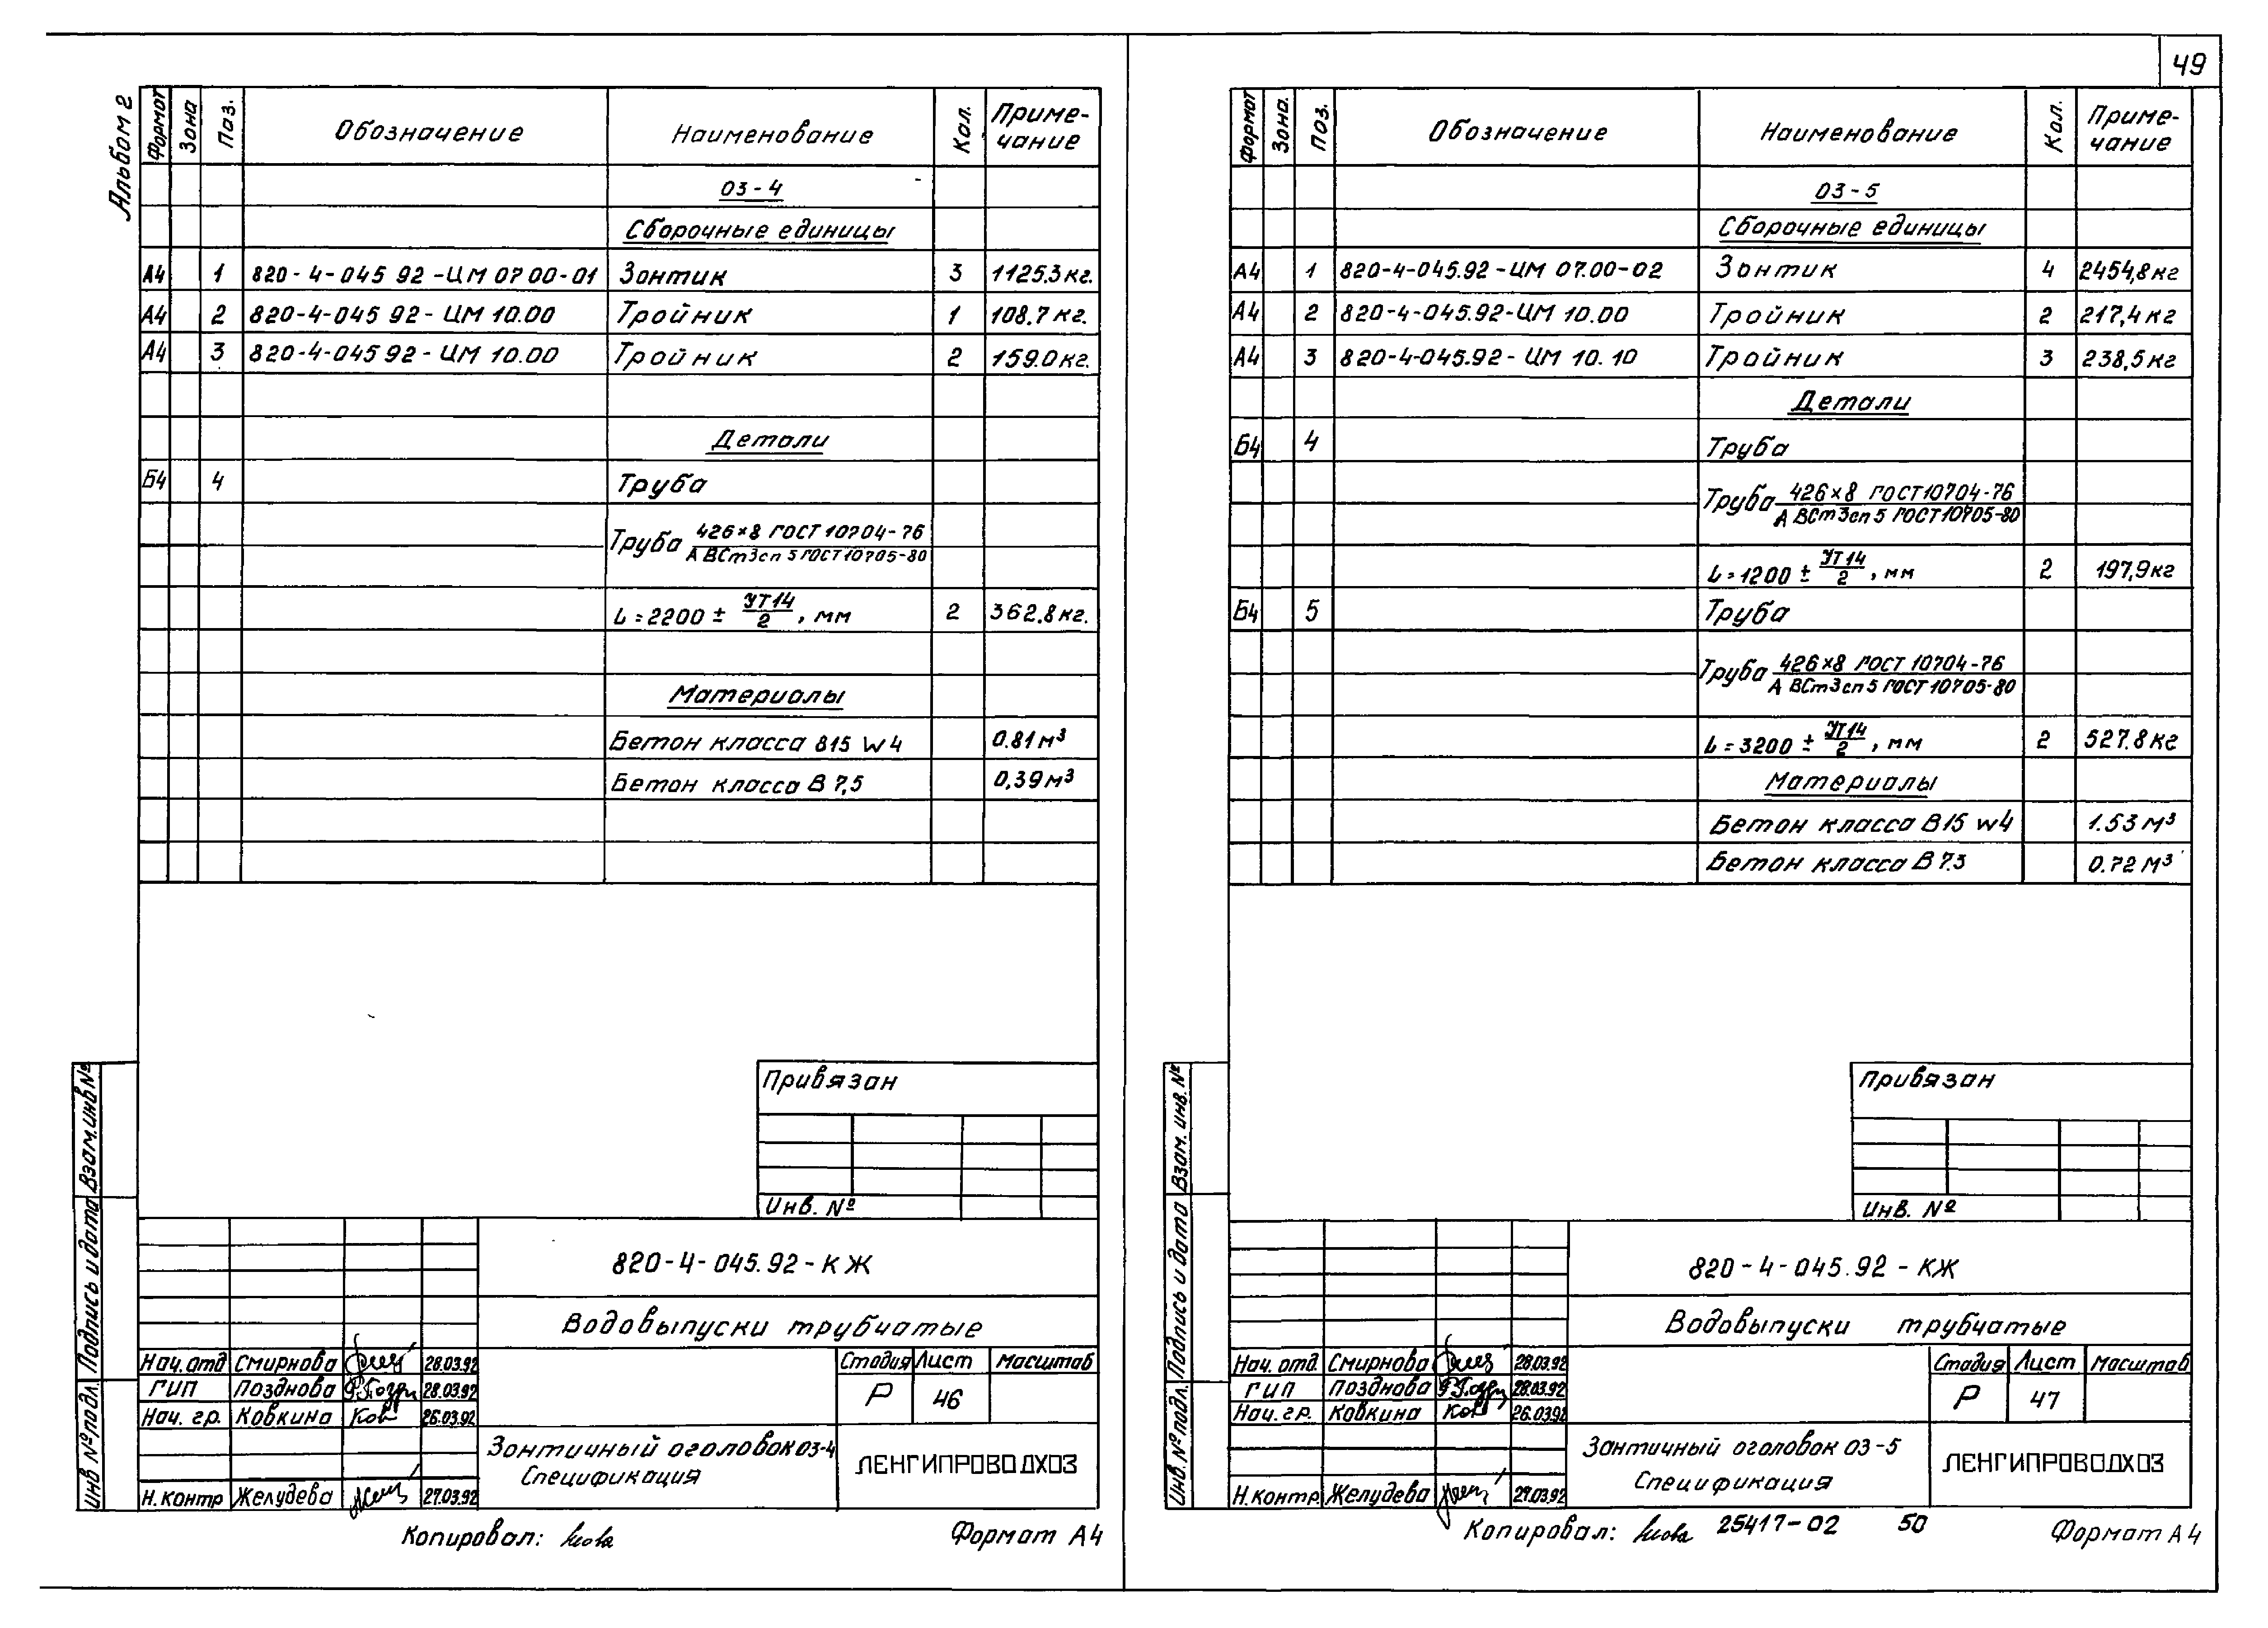 49
Альбом 2
Формат Зона Поз. Обозначение Наименование Кол. Приме-
чание
03-4
Сборочные единицы
А4 1 820-4-045 92-ЦМ 07 00-01 Зонтик 3 1125.3 кг.
А4 2 820-4-045 92-ЦМ 10.00 Тройник 1 108.7 кг.
А4 3 820-4-045 92-ЦМ 10.00 Тройник 2 159.0 кг.
Детали
Б4 4 Труба
Труба 426×8 ГОСТ 10704-76
А ВСт3сп 5 ГОСТ 10705-80
L=2200 ± УТ14/2, мм 2 362.8 кг.
Материалы
Бетон класса В15 W4 0.81 м³
Бетон класса В 7,5 0,39 м³
Привязан
Инв. №
820-4-045.92-КЖ
Водовыпуски трубчатые
Нач. отд Смирнова 28.03.92
ГИП Позднова 28.03.92
Нач. гр. Ковкина 26.03.92
Н.контр Желудева 27.03.92
Стадия Лист Масштаб
Р 46
Зонтичный оголовок 03-4
Спецификация
ЛЕНГИПРОВОДХОЗ
Взам.инв №
Подпись и дата
Инв № подл.
Копировал:
Формат А4
Формат Зона. Поз. Обозначение Наименование Кол. Приме-
чание
03-5
Сборочные единицы
А4 1 820-4-045.92-ЦМ 07.00-02 Зонтик 4 2454,8 кг
А4 2 820-4-045.92-ЦМ 10.00 Тройник 2 217,4 кг
А4 3 820-4-045.92-ЦМ 10.10 Тройник 3 238,5 кг
Детали
Б4 4 Труба
Труба 426×8 ГОСТ 10704-76
А ВСт3сп 5 ГОСТ 10705-80
L=1200 ± УТ14/2, мм 2 197,9 кг
Б4 5 Труба
Труба 426×8 ГОСТ 10704-76
А ВСт3сп 5 ГОСТ 10705-80
L=3200 ± УТ14/2, мм 2 527.8 кг
Материалы
Бетон класса В15 W4 1.53 м³
Бетон класса В 7.5 0.72 м³
Привязан
Инв. №
820-4-045.92-КЖ
Водовыпуски трубчатые
Нач. отд. Смирнова 28.03.92
ГИП Позднова 28.03.92
Нач. гр. Ковкина 26.03.92
Н.контр. Желудева 27.03.92
Стадия Лист Масштаб
Р 47
Зонтичный оголовок 03-5
Спецификация
ЛЕНГИПРОВОДХОЗ
Взам. инв. №
Подпись и дата
Инв. № подл.
Копировал: 25417-02 50
Формат А4